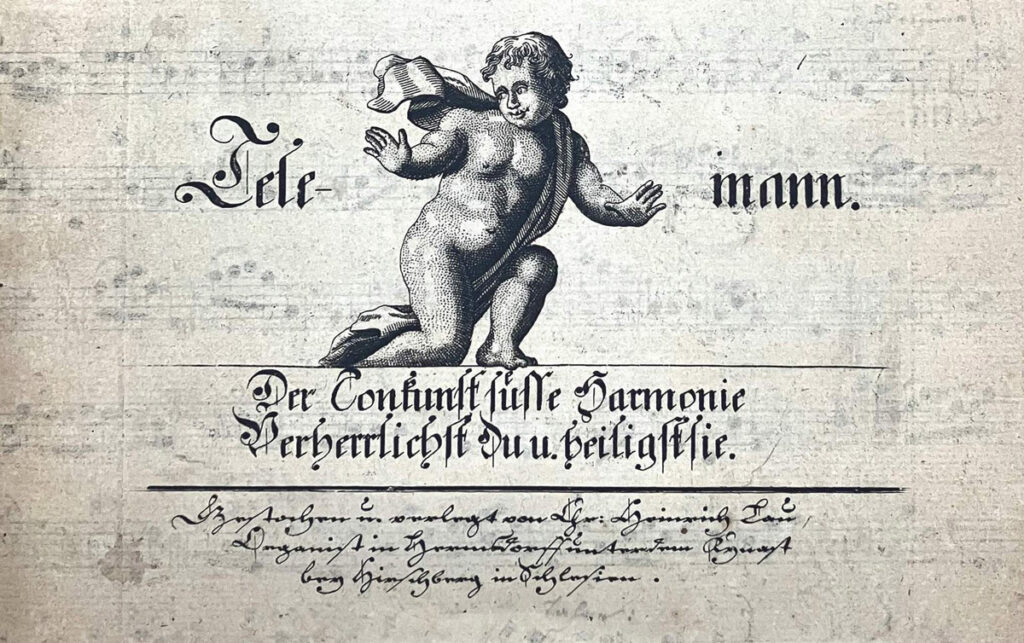 Tele- mann.
Der Tonkunst süsse Harmonie
Verherrlichst du u. heiligst sie.
Gestochen u. verlegt von Chr: Heinrich Lau,
Organist in Hermsdorff unter dem Kynast
bey Hirschberg in Schlesien.